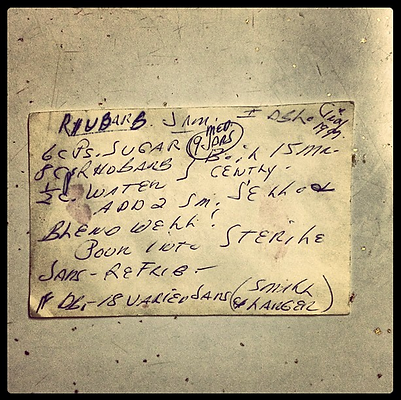 RHUBARB. JAM.
6 CPS. SUGAR (9 MED. JARS)
8 C. RHUBARB } BOIL 15 MN.
1/2 C. WATER GENTLY.
ADD 2 SM. JELLO
BLEND WELL!
POUR INTO STERILE
JARS - REFRIG -
18 VARIED JARS (SMALL & LARGER)